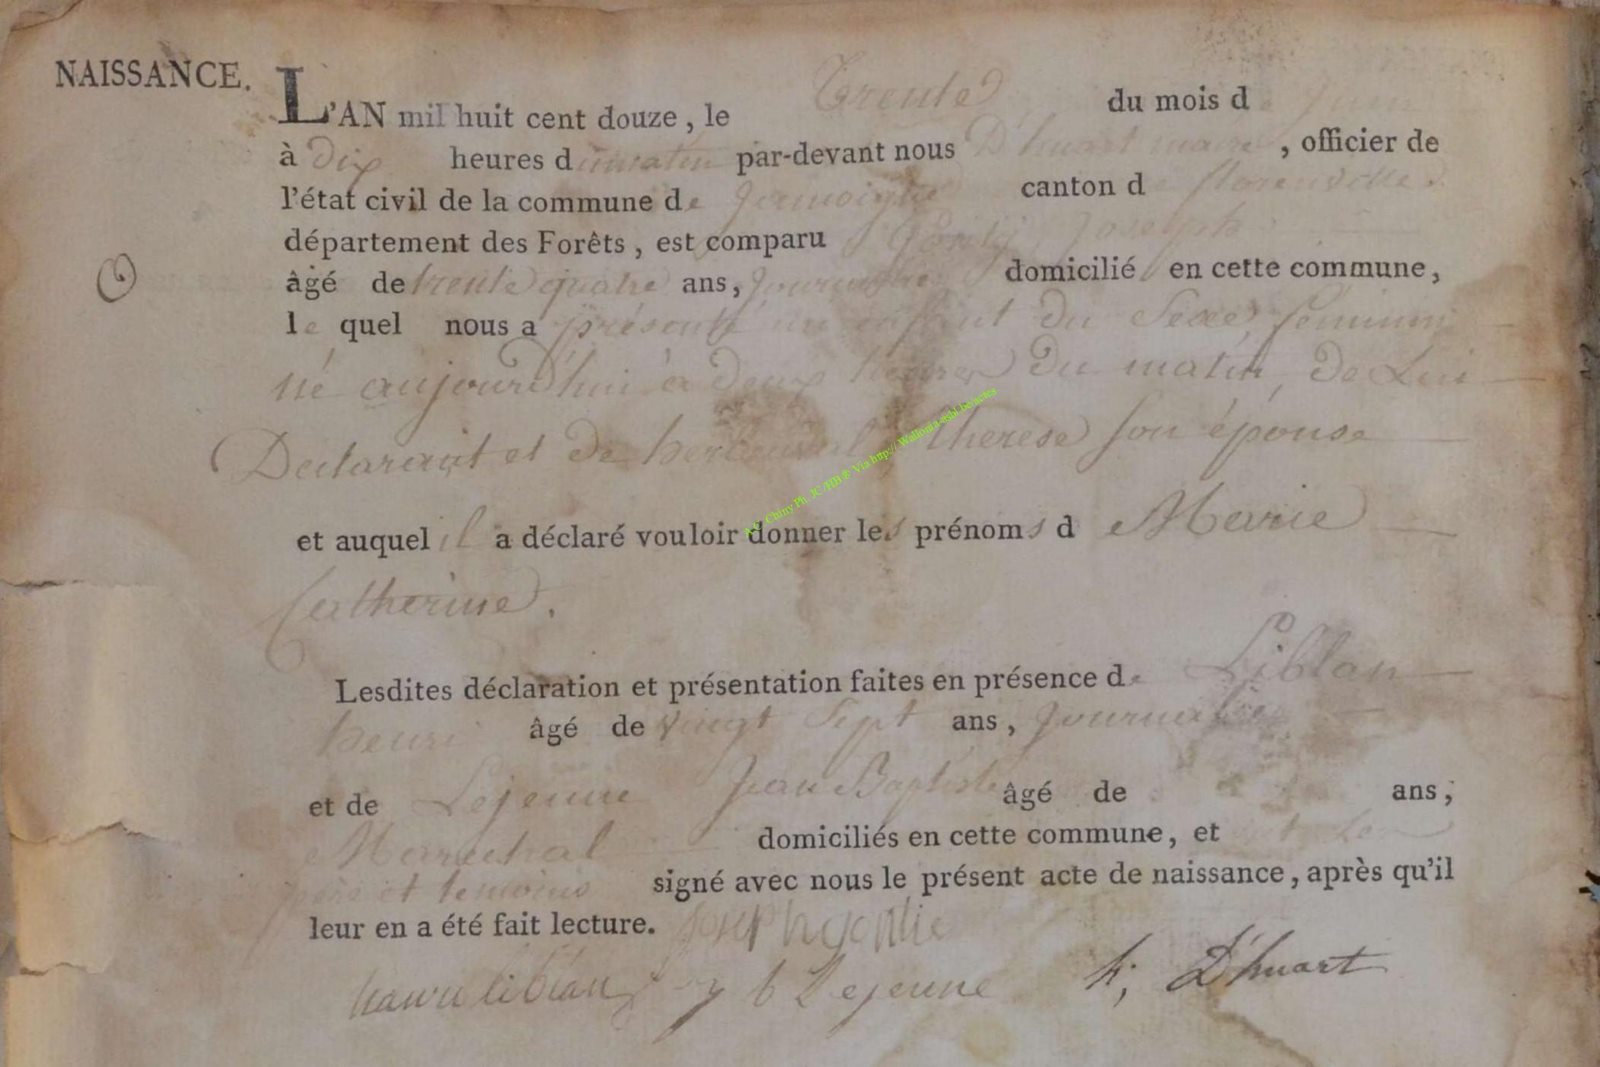 NAISSANCE.
L'AN mil huit cent douze, le Trente du mois de Juin
à dix heures du matin par-devant nous D'huart maire, officier de
l'état civil de la commune de Jamoigne canton de florenville
département des Forêts, est comparu Joseph
âgé de trente quatre ans, journalier domicilié en cette commune,
le quel nous a présenté un enfant du Sexe féminin
né aujourd'hui à deux heures du matin, de Lui
Déclarant et de herbeuval, therese son épouse
et auquel il a déclaré vouloir donner les prénoms d Marie
Catherine.
Lesdites déclaration et présentation faites en présence de Liblan
henri âgé de vingt Sept ans, journalier
et de Lejeune Jean Baptiste âgé de ans,
Marechal domiciliés en cette commune, et
père et temoins signé avec nous le présent acte de naissance, après qu'il
leur en a été fait lecture. Joseph
liblan J b Lejeune h; D'huart
Chiny Ph. JC/HB ® Via http://Wallonia-asbl.be/actes